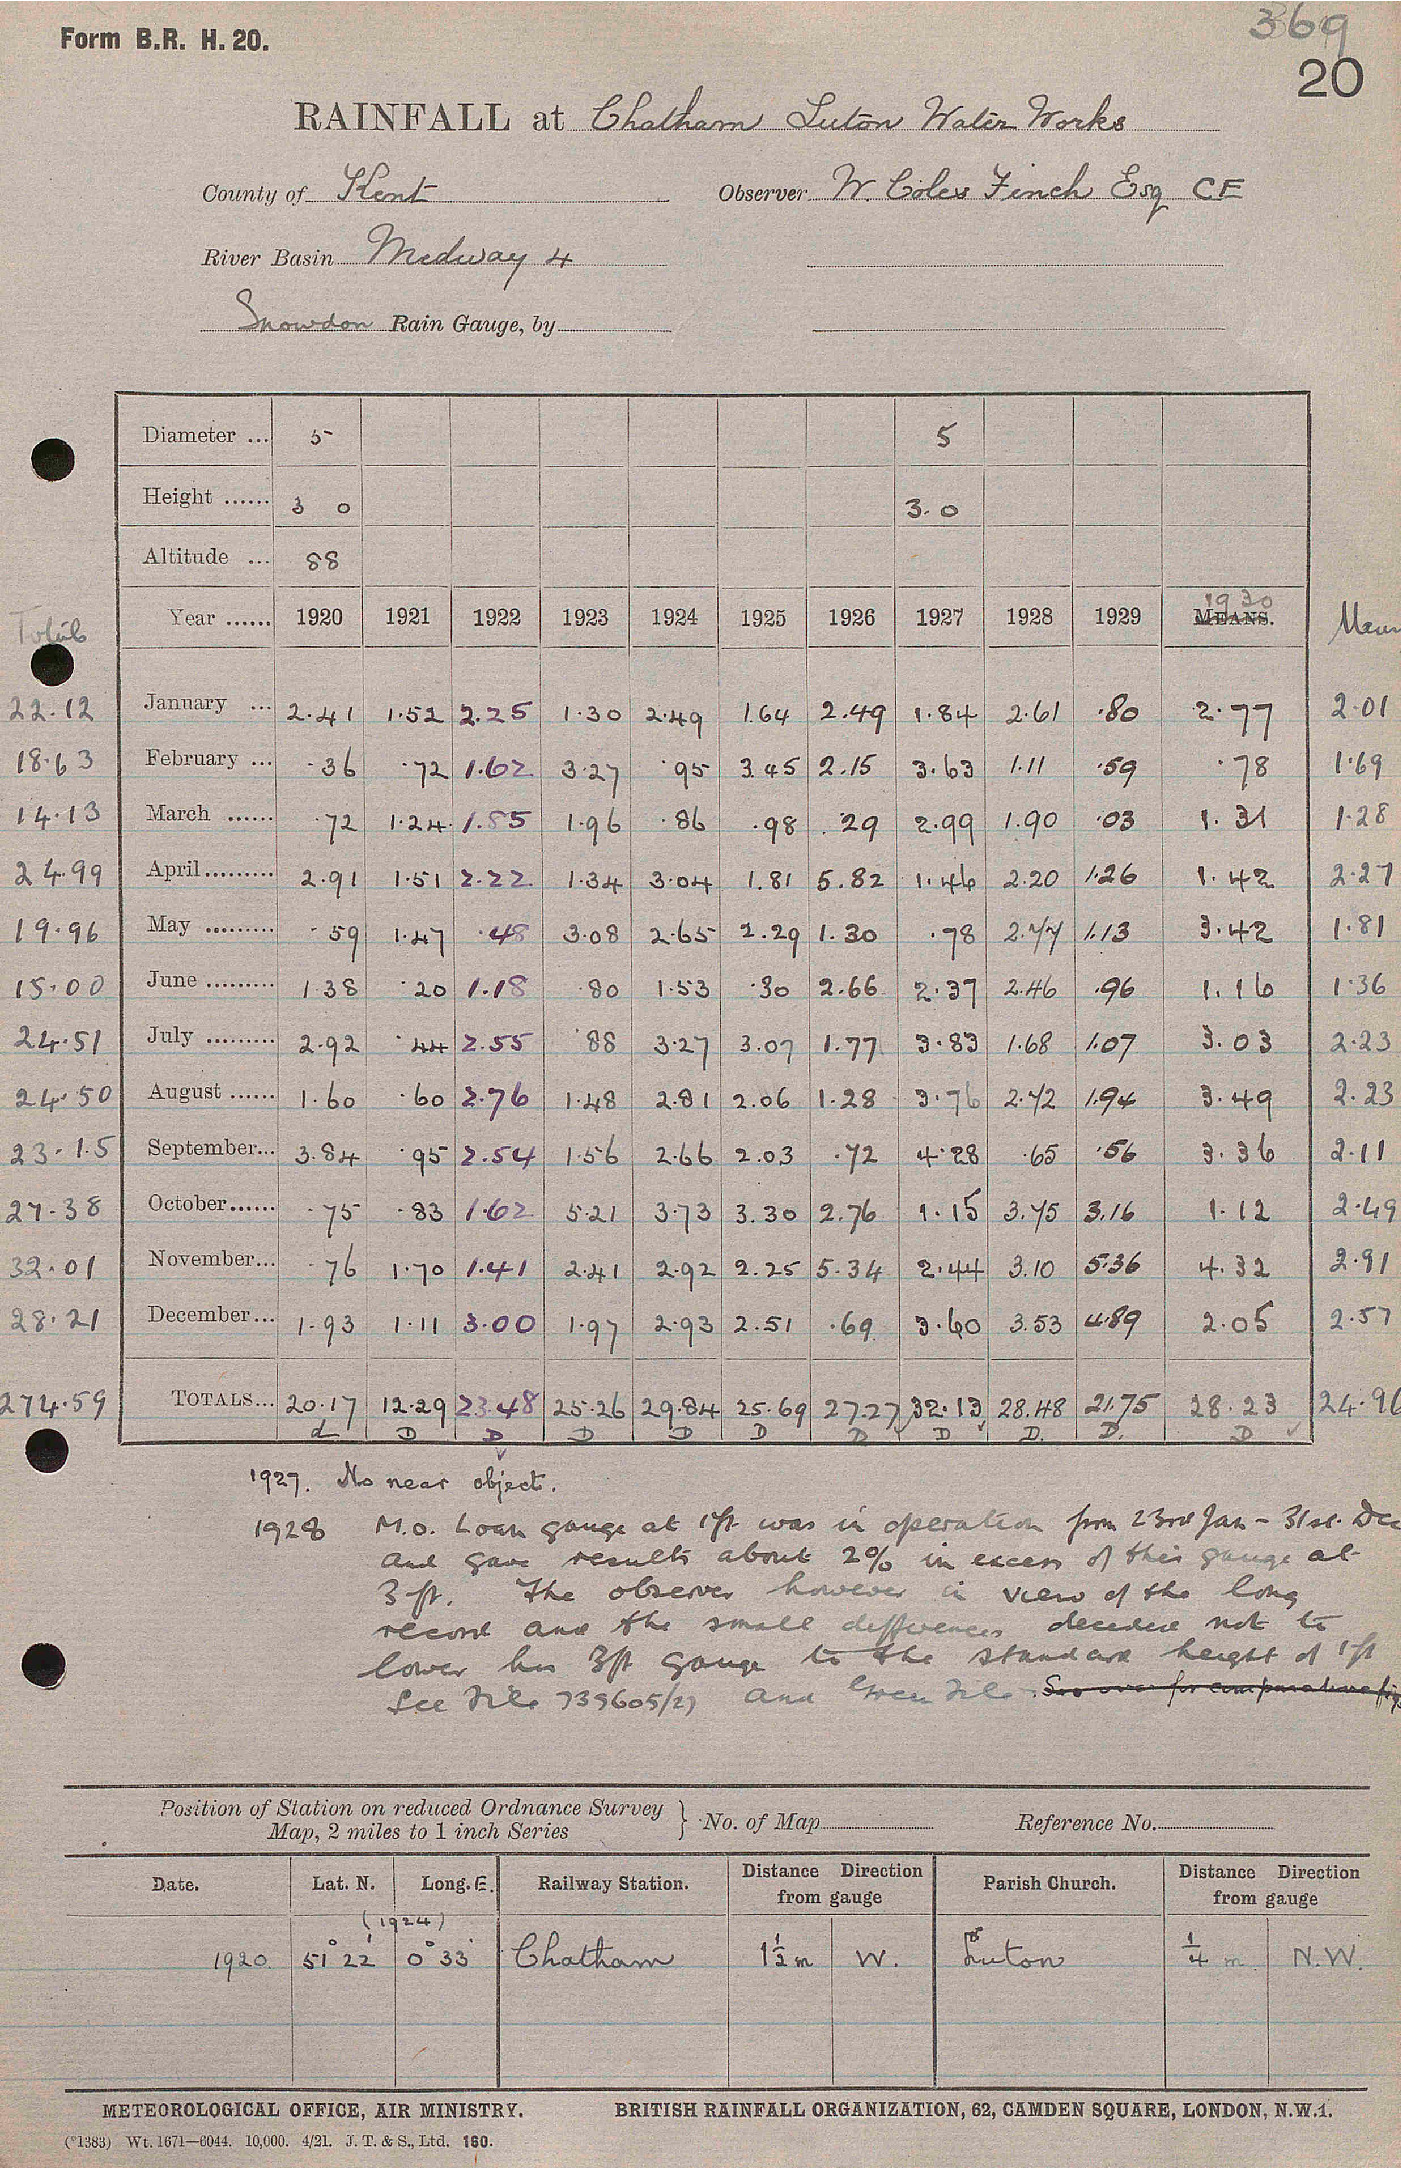 Form B.R. H. 20.
369
20
RAINFALL at Chatham Luton Water Works
County of Kent Observer W. Coles Finch Esq CE
River Basin Medway 4
Snowdon Rain Gauge, by
Diameter ... 5 5
Height ...... 3 0 3. 0
Altitude ... 88
Totals Year ...... 1920 1921 1922 1923 1924 1925 1926 1927 1928 1929 MEANS. 1930 Mean
22.12 January ... 2.41 1.52 2.25 1.30 2.49 1.64 2.49 1.84 2.61 .80 2.77 2.01
18.63 February ... .36 .72 1.62 3.27 .95 3.45 2.15 3.63 1.11 .59 .78 1.69
14.13 March ...... .72 1.24 1.85 1.96 .86 .98 .29 2.99 1.90 .03 1.31 1.28
24.99 April......... 2.91 1.51 2.22 1.34 3.04 1.81 5.82 1.46 2.20 1.26 1.42 2.27
19.96 May ......... .59 1.47 .48 3.08 2.65 2.29 1.30 .78 2.77 1.13 3.42 1.81
15.00 June ......... 1.38 .20 1.18 .80 1.53 .30 2.66 2.37 2.46 .96 1.16 1.36
24.51 July ......... 2.92 .44 2.55 .88 3.27 3.07 1.77 3.83 1.68 1.07 3.03 2.23
24.50 August ...... 1.60 .60 2.76 1.48 2.81 2.06 1.28 3.76 2.72 1.94 3.49 2.23
23.15 September... 3.84 .95 2.54 1.56 2.66 2.03 .72 4.28 .65 .56 3.36 2.11
27.38 October...... .75 .83 1.62 5.21 3.73 3.30 2.76 1.15 3.75 3.16 1.12 2.49
32.01 November... .76 1.70 1.41 2.41 2.92 2.25 5.34 2.44 3.10 5.36 4.32 2.91
28.21 December... 1.93 1.11 3.00 1.97 2.93 2.51 .69 3.60 3.53 4.89 2.05 2.57
274.59 TOTALS... 20.17 12.29 23.48 25.26 29.84 25.69 27.27 32.13 28.48 21.75 28.23 24.96
d D D D D D D D D. D. D
1927. No near object.
1928 M.O. Loan gauge at 1ft was in operation from 23rd Jan - 31st Dec
and gave results about 2% in excess of this gauge at
3ft. The observer however in view of the long
record and the small differences decided not to
lower his 3ft gauge to the standard height of 1ft
See File 739605/27 and Green File. See over for comparative figs
Position of Station on reduced Ordnance Survey Map, 2 miles to 1 inch Series } No. of Map Reference No.
Date. Lat. N. Long. E. Railway Station. Distance Direction from gauge Parish Church. Distance Direction from gauge
(1924)
1920. 51° 22' 0° 33' Chatham 1½ m W. Luton ¼ m N.W.
METEOROLOGICAL OFFICE, AIR MINISTRY. BRITISH RAINFALL ORGANIZATION, 62, CAMDEN SQUARE, LONDON, N.W.1.
(*1383) Wt. 1671—6044. 10,000. 4/21. J. T. & S., Ltd. 160.